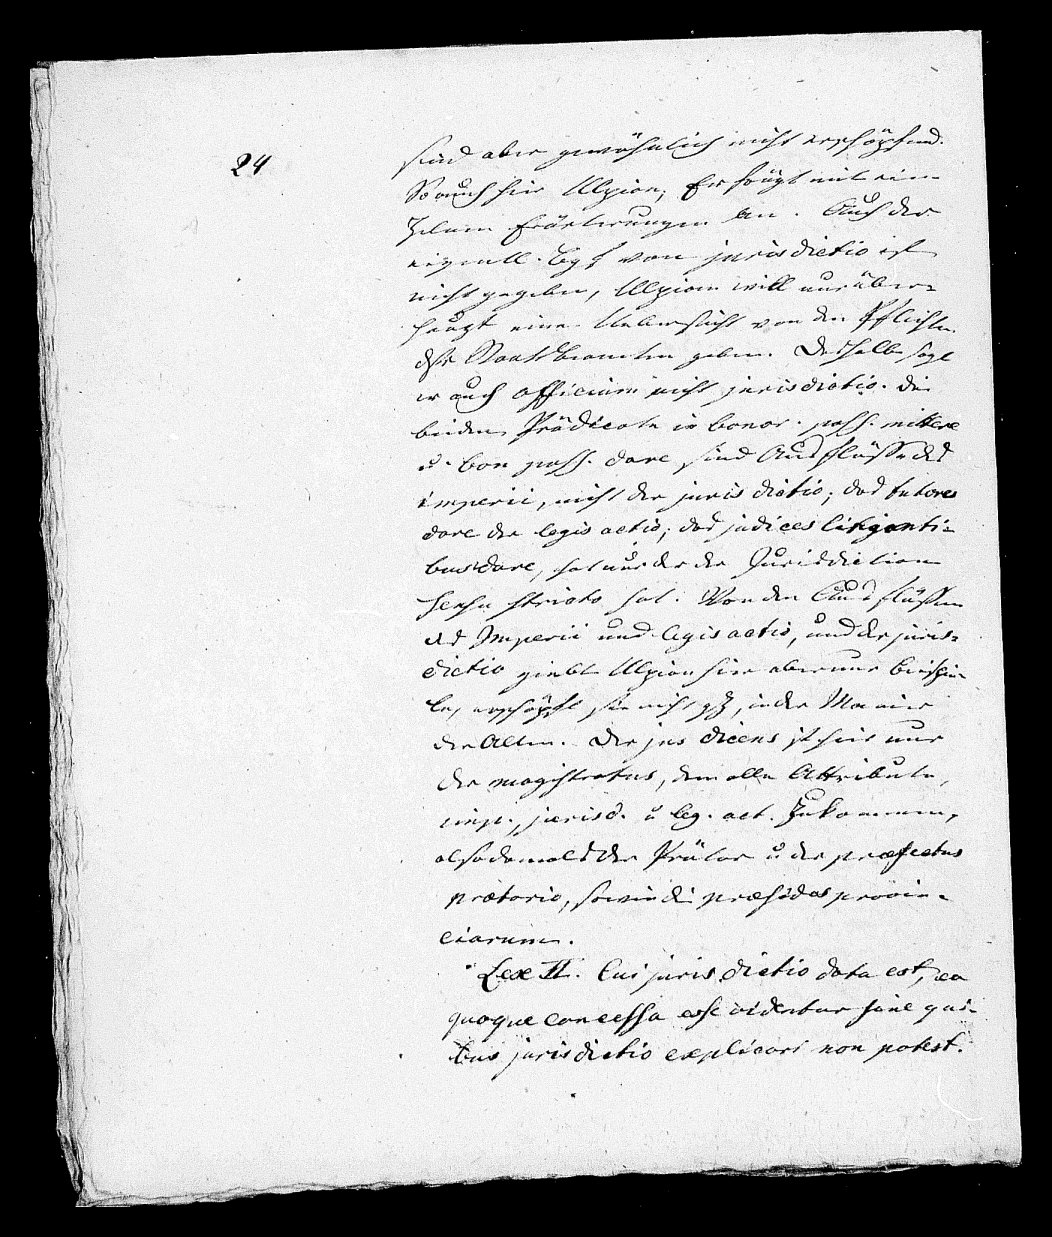 24
sind aber gewöhnlich nicht erschöpfend.
So auch hier Ulpian; Er fängt mit ein-
zelnen Erörterungen an. Auch der
eigentl. Bgf von jurisdictio ist
nicht gegeben, Ulpian will nur über-
haupt eine Uebersicht von den Pflichten
der Staatsbeamten geben. Deshalb sagt
er auch officium nicht jurisdictio. Die
beiden Prädicate in bonor. poss. mittere
u. bon poss. dare sind Ausflüsse des
imperii, nicht der jurisdictio; das tutores
dare der legis actio; das judices litiganti-
bus dare, hat nur der der Jurisdiction
sensu stricto hat. Von den Ausflüssen
des Imperii und legis actio, und der juris-
dictio giebt Ulpian hier aber nur Beispie-
le, erschöpft sie nicht gz, in der Manier
der Alten. Der jus dicens ist hier nur
der magistratus, dem alle Attribute,
imp., jurisd. u leg. act. zukommen,
also damals der Prätor u der praefectus
praetorio, sowie die praesides provin-
ciarum.
Lex II. Cui jurisdictio data est, ea
quoque concessa esse videntur sine qui-
bus jurisdictio explicari non potest.